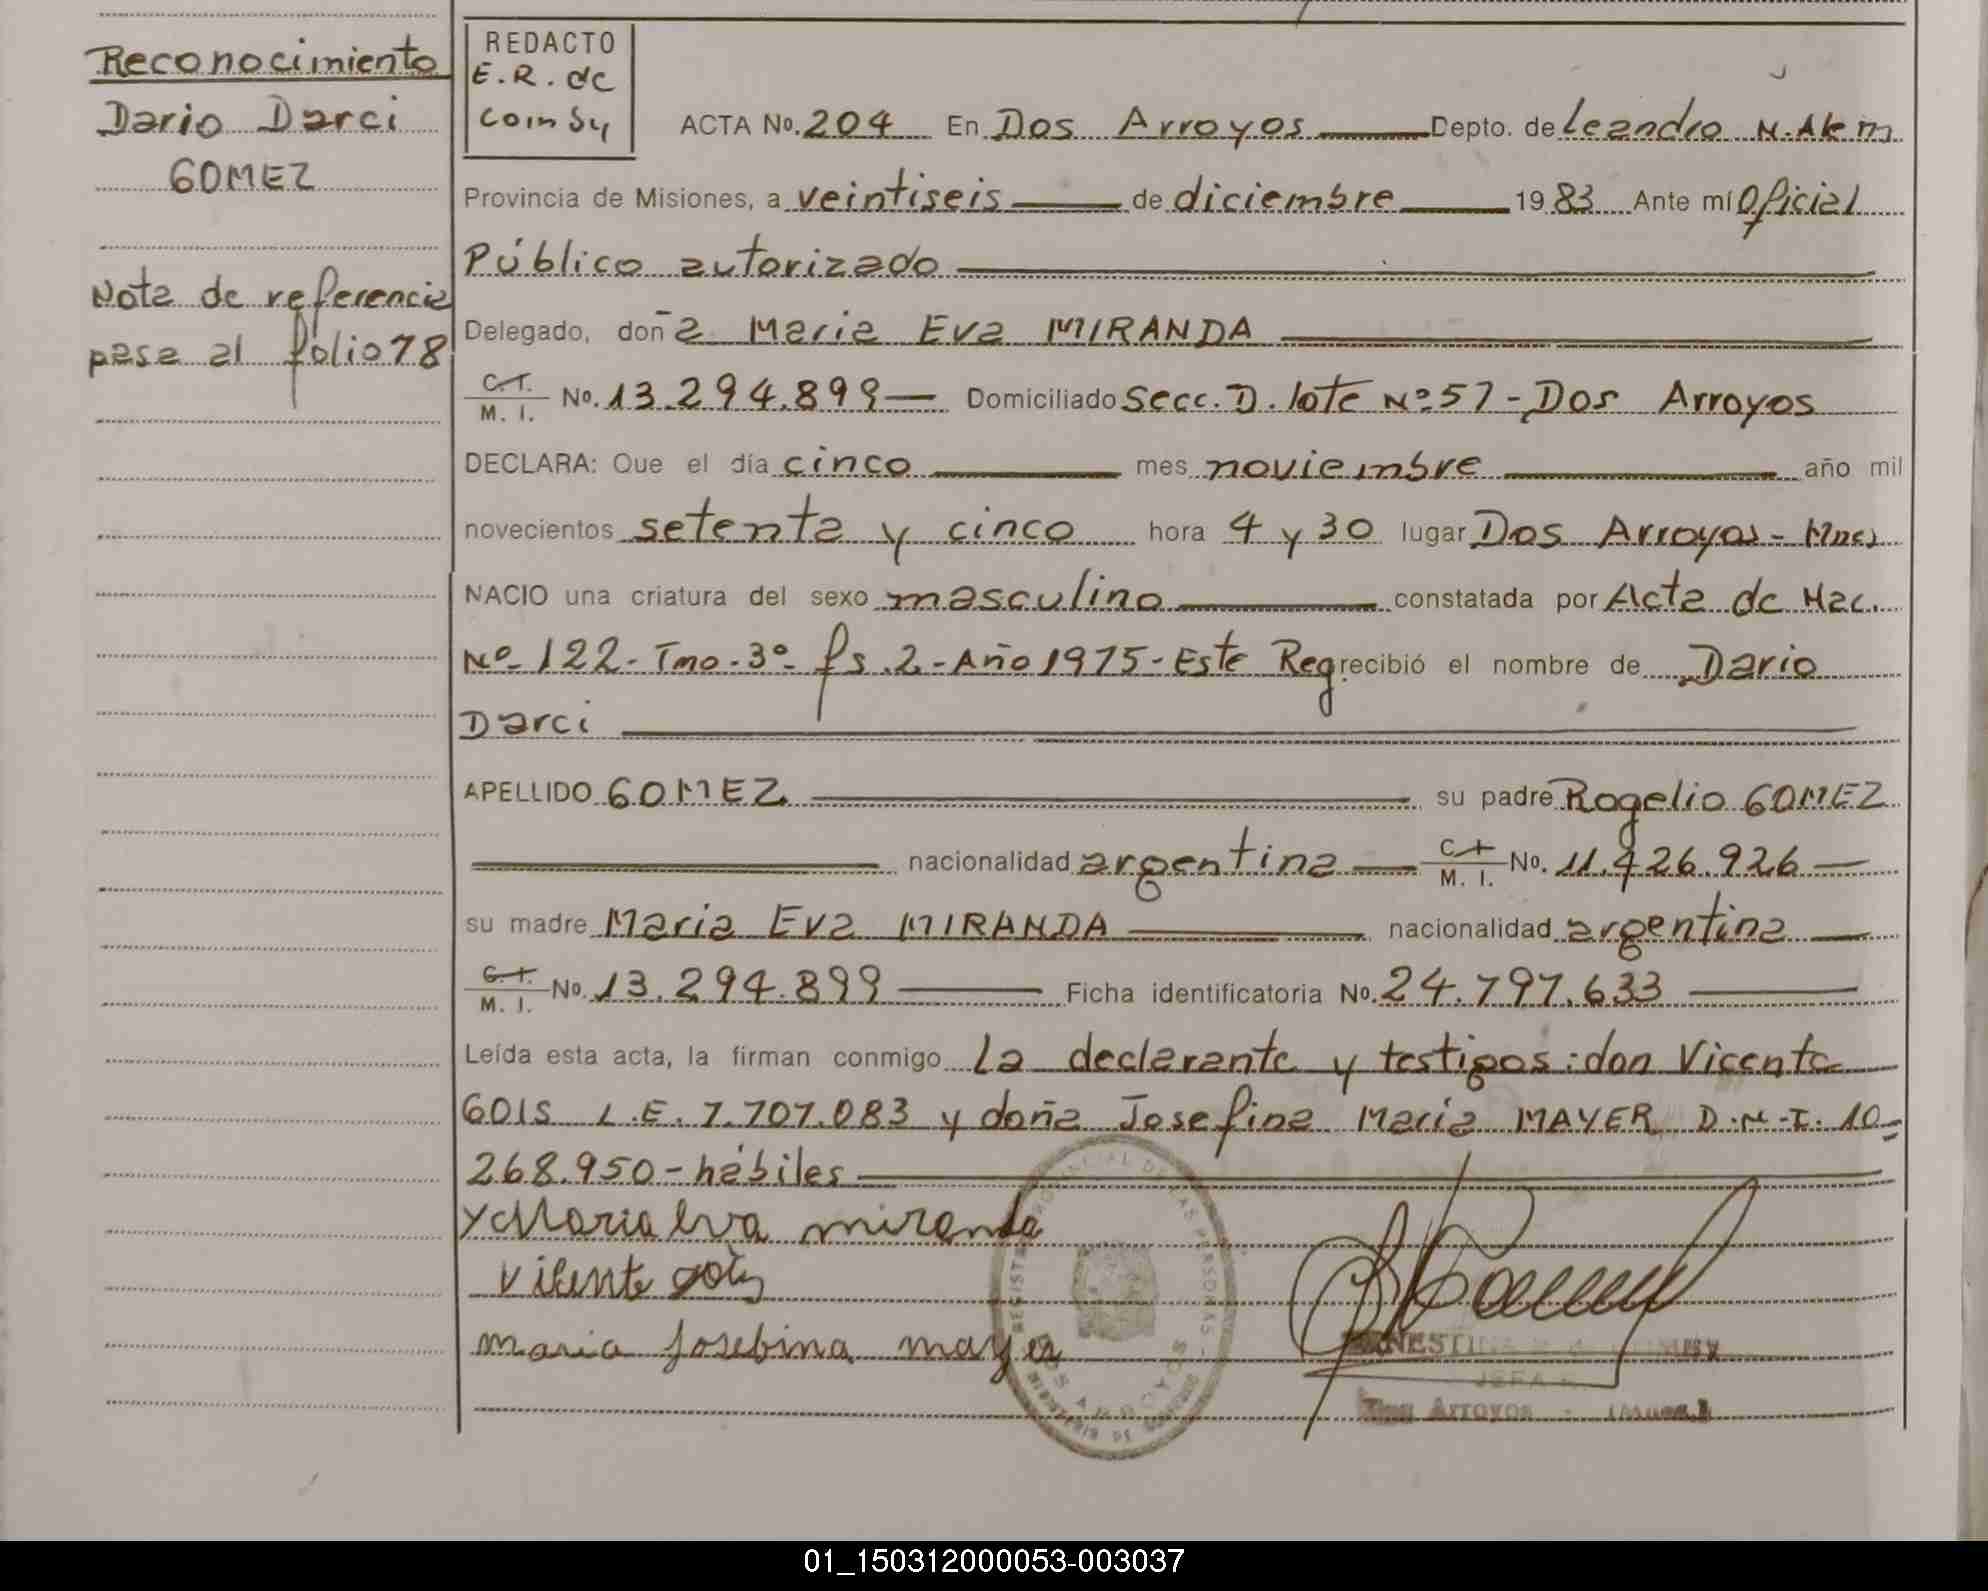 Reconocimiento
Dario Darci
GOMEZ
Nota de referencia
pasa al folio 78
REDACTO
E.R. de
ACTA No. 204 En Dos Arroyos Depto. de Leandro N. Alem
Provincia de Misiones, a veintiseis de diciembre 1983 Ante mí Oficial
Público autorizado
Delegado, doña Maria Eva MIRANDA
C.I. M. I. No. 13.294.899 Domiciliado Secc. D. lote Nº 57 - Dos Arroyos
DECLARA: Que el día cinco mes noviembre año mil
novecientos setenta y cinco hora 4 y 30 lugar Dos Arroyos - Mnes
NACIO una criatura del sexo masculino constatada por Acta de Nac.
Nº 122 - Tmo. 3º - fs. 2 - Año 1975 - Este Reg. recibió el nombre de Dario
Darci
APELLIDO GOMEZ su padre Rogelio GOMEZ
nacionalidad argentina C.I. M. I. No. 11.426.926
su madre Maria Eva MIRANDA nacionalidad argentina
C.I. M. I. No. 13.294.899 Ficha identificatoria No. 24.797.633
Leída esta acta, la firman conmigo La declarante y testigos: don Vicente
GOIS L.E. 7.707.083 y doña Josefina Maria MAYER D.N.I. 10-
268.950 - hábiles
Maria Eva miranda
Vicente gois
maria Josebina mayer
REGISTRO PROVINCIAL DE LAS PERSONAS
DOS ARROYOS
MINISTERIO DE GOBIERNO
Dos Arroyos - (Mnes.)
01_150312000053-003037